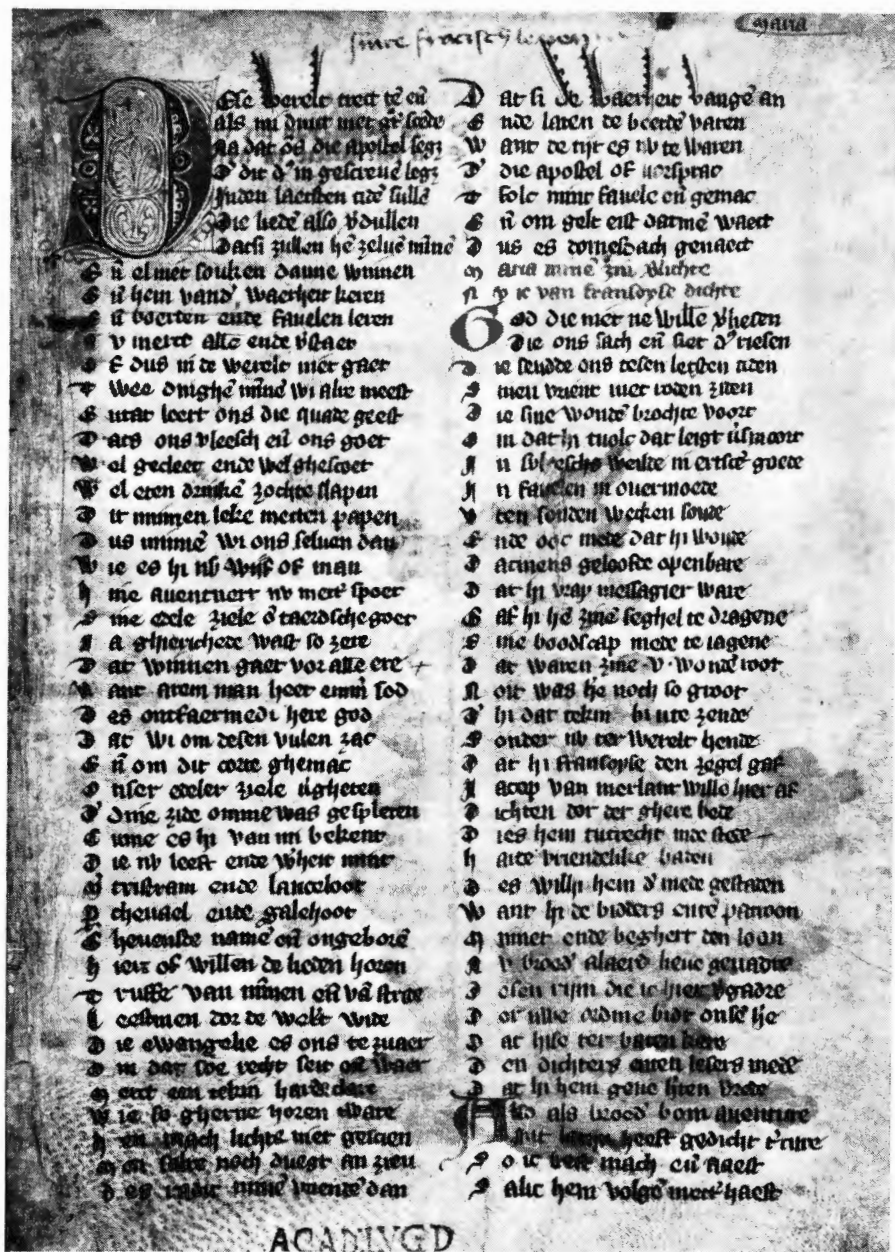 sinte franciscus leven
maria
Dese werelt trect te eñ
als nu diuit met gr̄ scede
Na dat ōs die apostel segz
D' dit d' in gescreuē legz
Inden laetsten tide sullē
Die liede also v̄dullen
Datsi zullen hē zeluē mīnē
Eñ el met souken danne winnen
Eñ hem vand' waerheit keren
Eñ boerten ende fauelen leren
Nv merct alle ende v̄staet
Of dus in de werelt niet gaet
Twee dinghē minē wi alre meest
Entat leert ons die quade geest
Dats ons vleesch eñ ons goet
Wel gecleet ende wel ghescoet
Wel eten drinkē zochte slapen
Dit minnen leke metten papen
Dus minnē wi ons seluen dan
Wie es hi nv wijf of man
Hine auentuert nv mett' spoet
Sine edele ziele ō taerdsche goet
Ja ghierichede wast so zere
Dat winnen gaet vor alle ere
Want arem man heet enen sod
Des ontfaermedi here god
Dat wi om desen vulen zac
Eñ om dit corte ghemac
Onser edeler ziele v̄gheten
D' dine zide omme was gespleten
Cume es hi van mi bekent
Die nv leeft ende wh̄eit mint
Mar tristram ende lanceloot
Percheuael ende galehoot
Gheueinsde name eñ ongeborē
Hier of willen de lieden horen
Truffe van minnen eñ vā stride
Leestmen dor de werelt wide
Die ewangelie es ons te zuaer
Om dat soe recht seit oñ waer
Merct een tekin harde clare
Wie so gherne horen ware
Hen mach lichte niet gescien
Men salre noch duegt an zien
Des radic minē vrientē dan
Dat si de waerheit vangē an
Ende laten de boerde varen
Want de tijt es nv te waren
D' die apostel of vorsprac
Tfolc mint fauele eñ gemac
Eñ om gelt eist datmē waect
Dus es domesdach genaect
Maria minē zin v̄lichte
Nv ic van fransoyse dichte
God die niet ne wille v̄liesen
Die ons sach eñ siet d' riesen
Die sendde ons tesen letsten tiden
Sinen vrient met roden ziden
Die sine wondē brochte voort
Om dat hi tuolc dat leigt v̄smoort
In vulesche weelde in ertscē goede
In fauelen in ouermoede
Vten sonden wecken soude
Ende ooc mede dat hi woude
Datmens geloofde openbare
Dat hi vray messagier ware
Gaf hi hē zinē seghel te dragene
Sine boodscap mede te iagene
Dat waren zine .v. wondē root
Noit was hē noch so groot
D' hi dat tekin bi ute zende
Sonder nv ter werelt hende
Dat hi fransoyse den zegel gaf
Jacop van merlant wille hier af
Dichten dor der ghere bede
Dies hem tutrecht inde stede
Hads vriendelike baten
Des willi hem d' mede gestaden
Want hi de bidders entē patroon
Minnet ende beghert den loon
Nv broed' alaerd heuc genadre
Desen rijm die ic hier v̄gadre
Dor uwe oedmoe bidt onsē h̄e
Dat hise ter baten kere
Den dichters enten lesers mede
Dat hi hem geue sijnen vrede
Also als broed' bom auenture
Int latijn heeft gedicht t'ture
So ic best mach eñ naest
Salic hem volgē mett' haest
ACAD LVGD